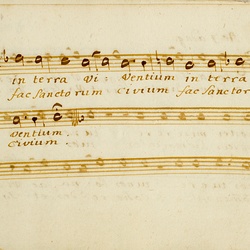 in terra vi: ventium in terra
fac Sanctorum Civium fac Sanctor
ventium.
Civium.